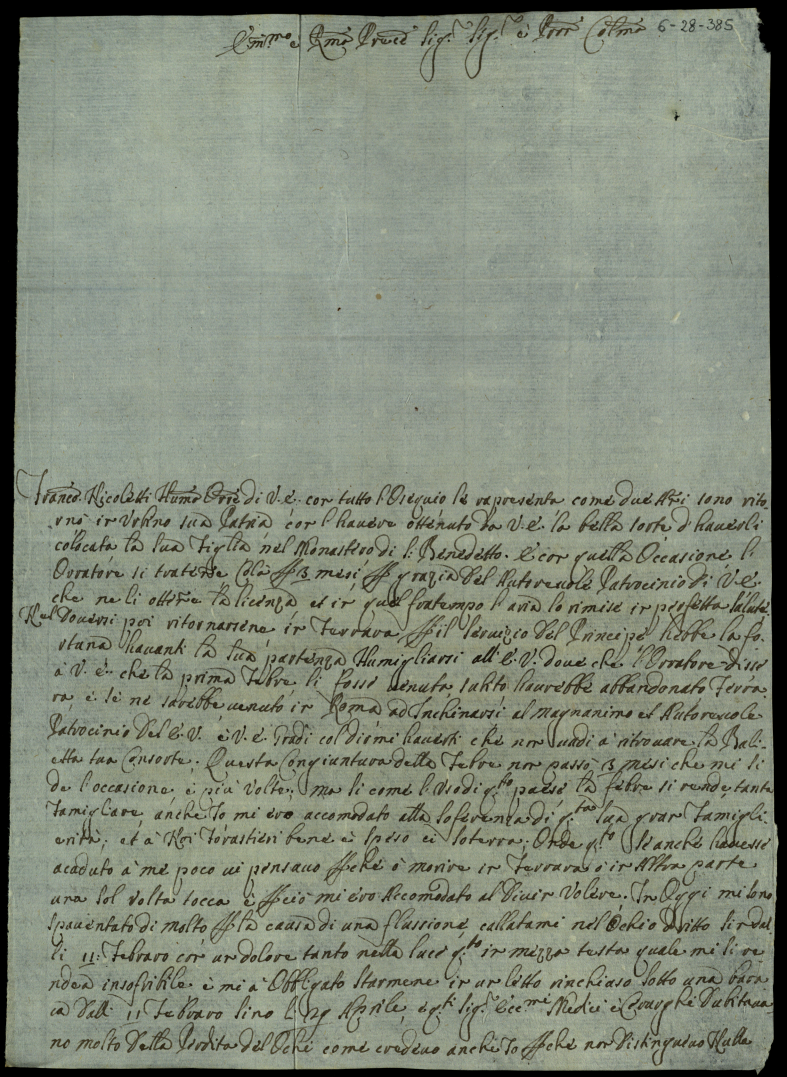 Em.mo e Rmo Prend Sig.r Sig.r e Pron Colmo 6-28-385
Franco Nicoletti Humo Orre di V. E. con tutto l'Osequio le rapresenta come due Anni sono ritor
nò in Urbino sua Patria con l'havere ottenuto da V. E. la bella sorte d'haverli
colocata la sua Figlia nel Monastero di S. Benedetto. E con quella Occasione l'
Orratore si tratene colà per 3 mesi, per grazia del Autorevole Patrocinio di V. E.
che ne li ottene la licenza et in quel fratempo l'aria lo rimise in perfetta salute
Nel doversi poi ritornarsene in Ferrara, per il servizio del Principe hebbe la for
tuna havanti la sua partenza Humigliarsi all'E. V. dove che l'Orratore disse
à V. E. che la prima Febre li fosse venuta subito haurebbe abbandonato Ferra
ra, e se ne sarebbe venuto in Roma ad Inchinarsi al Magnanimo et Autorevole
Patrocinio del E. V. e V. E. Gradi col diomi haverti che non vadi à ritrovare la Bali
etta tua Consorte. Questa Congiuntura delle Febre non passò 3 mesi che mi li
de l'occasione, e più volte; ma si come l'Uso di q.to paese la febre si rende tanta
Famigliare, anche Io mi ero accomodato alla soferenza di q.ta sua gran Famigli
erità; et à Noi Forastieri bene e speso ci soterra; Onde q.to se anche havesse
acaduto à me poco vi pensavo perche ò morire in Ferrara ò in Altra parte
una sol volta tocca e per ciò mi ero Accomodato al Divin Volere. In Oggi mi sono
spaventato di molto per la causa di una flussione callatami nel Ochio dritto sin dal
li 11: Febraro con un dolore tanto nella luce q.to in mezza testa quale mi si re
ndea insofribile e mi à Obbligato starmene in un letto rinchiuso sotto una bara
ca dalli 11 Febraro sino li 29 Aprile, e q.ti Sig.ri Ecc.mi Medici e Cirurghi dubitava
no molto della Perdita del Ochi come credevo anche Io perche non distinguevo Nulla